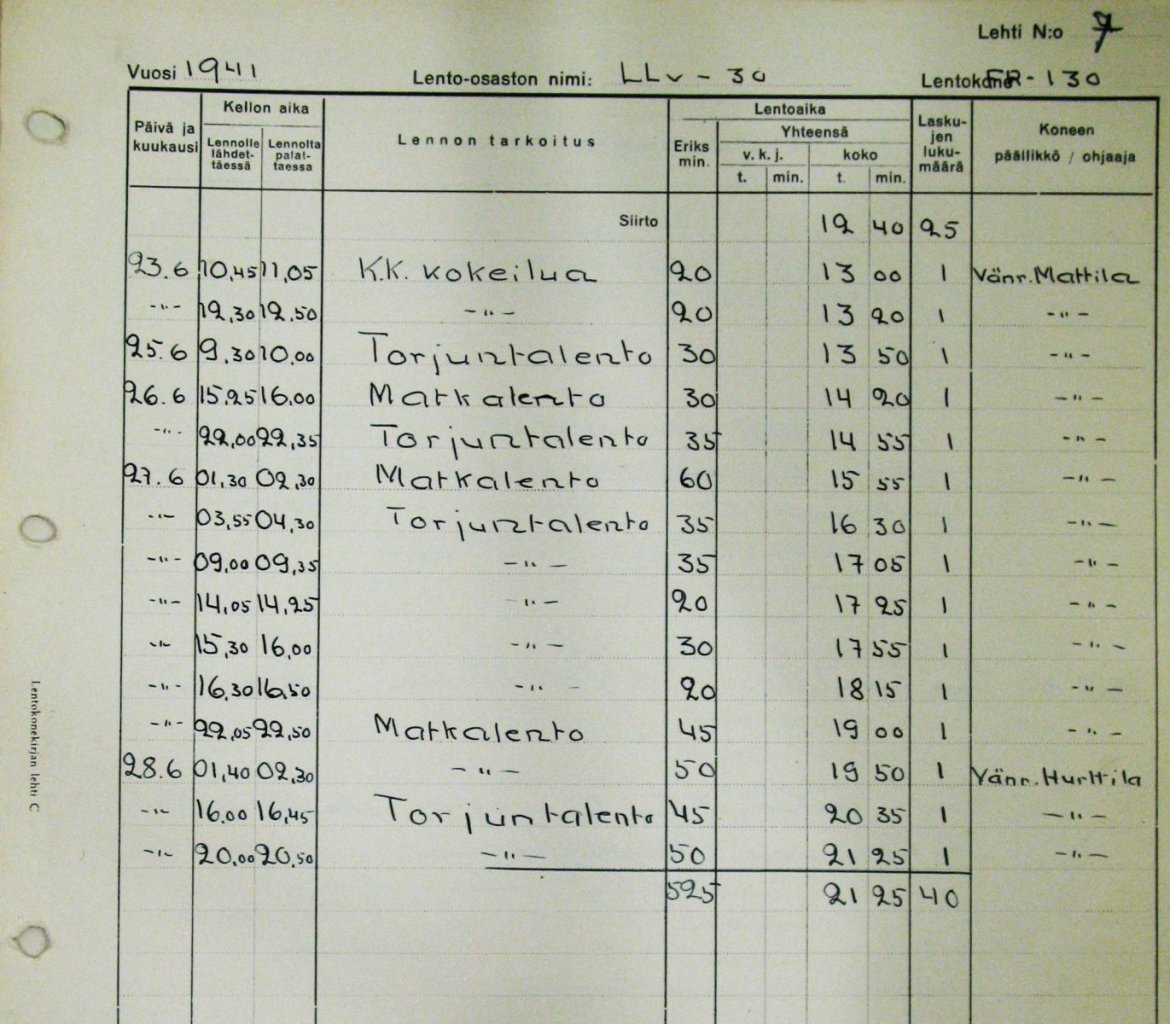 Lehti N:o 7
Vuosi 1941 Lento-osaston nimi: LLv - 30 Lentokone FR - 130
Päivä ja kuukausi Kellon aika Lennolle lähdettäessä Lennolta palattaessa Lennon tarkoitus Lentoaika Eriks min. Yhteensä v. k. j. t. min. koko t. min. Laskujen lukumäärä Koneen päällikkö / ohjaaja
Siirto 12 40 25
23.6 10,45 11,05 K.K. kokeilua 20 13 00 1 Vänr. Mattila
-"- 12,30 12,50 -"- 20 13 20 1 -"-
25.6 9,30 10,00 Torjuntalento 30 13 50 1 -"-
26.6 15,25 16,00 Matkalento 30 14 20 1 -"-
-"- 22,00 22,35 Torjuntalento 35 14 55 1 -"-
27.6 01,30 02,30 Matkalento 60 15 55 1 -"-
-"- 03,55 04,30 Torjuntalento 35 16 30 1 -"-
-"- 09,00 09,35 -"- 35 17 05 1 -"-
-"- 14,05 14,25 -"- 20 17 25 1 -"-
-"- 15,30 16,00 -"- 30 17 55 1 -"-
-"- 16,30 16,50 -"- 20 18 15 1 -"-
-"- 22,05 22,50 Matkalento 45 19 00 1 -"-
28.6 01,40 02,30 -"- 50 19 50 1 Vänr. Hurttila
-"- 16.00 16,45 Torjuntalento 45 20 35 1 -"-
-"- 20,00 20,50 -"- 50 21 25 1 -"-
525 21 25 40
Lentokonekirjan lehti C